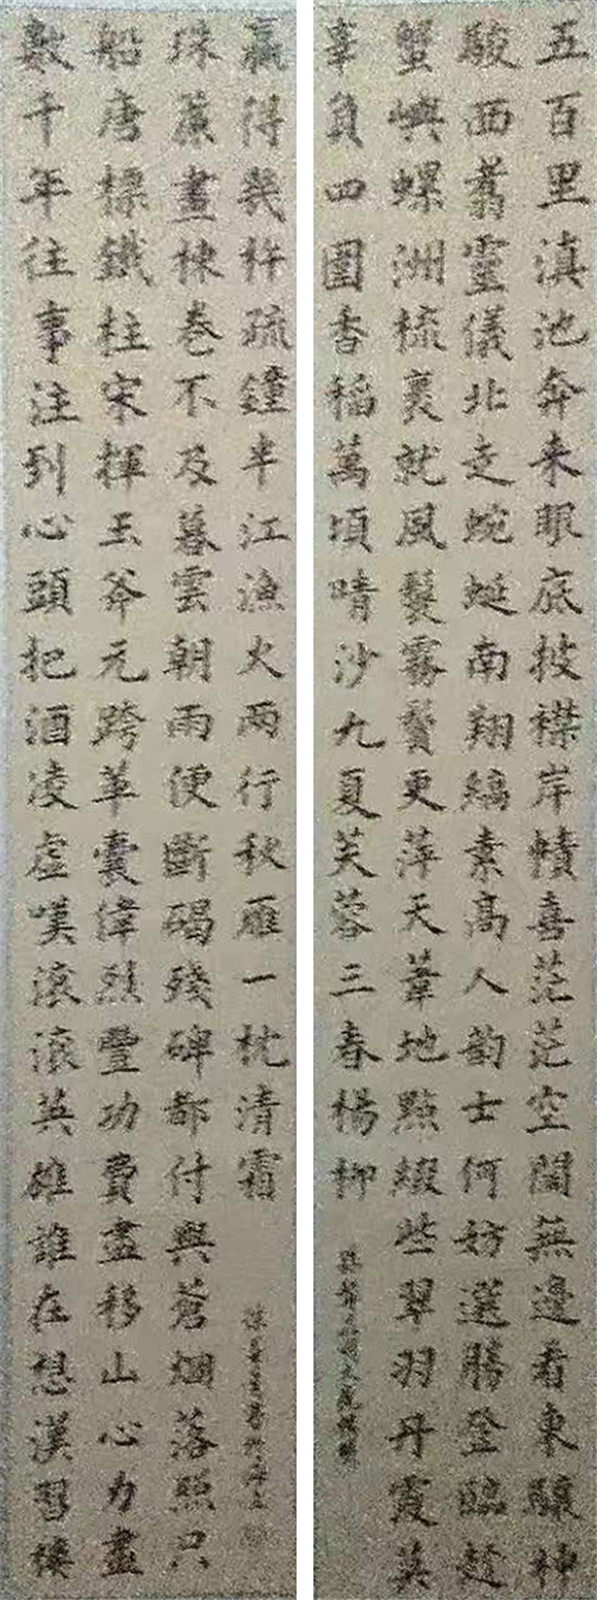 五百里滇池奔来眼底披襟岸幘喜茫茫空闊無邊看東驤神
駿西翥靈儀北走蜿蜒南翔縞素高人韵士何妨選勝登臨趁
蟹嶼螺洲梳裹就風鬟霧鬢更萍天葦地點綴些翠羽丹霞莫
辜負四圍香稻萬頃晴沙九夏芙蓉三春楊柳
數千年往事注到心頭把酒凌虚嘆滚滚英雄誰在想漢習樓
船唐標鐵柱宋揮玉斧元跨革囊偉烈豐功費盡移山心力盡
珠簾畫棟卷不及暮雲朝雨便斷碣殘碑都付與蒼烟落照只
贏得幾杵疏鐘半江漁火兩行秋雁一枕清霜